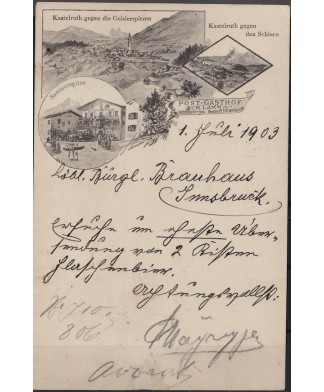 Kastelruth gegen die Geislerspitzen
Kastelruth gegen
den Schlern
POST-GASTHOF
ZUM LAMM
1. Juli 1903
Löbl. Bürgl. Bräuhaus
Innsbruck.
Ersuche um eheste Über-
sendung von 2 Kisten
Flaschenbier.
Achtungsvollst:
806